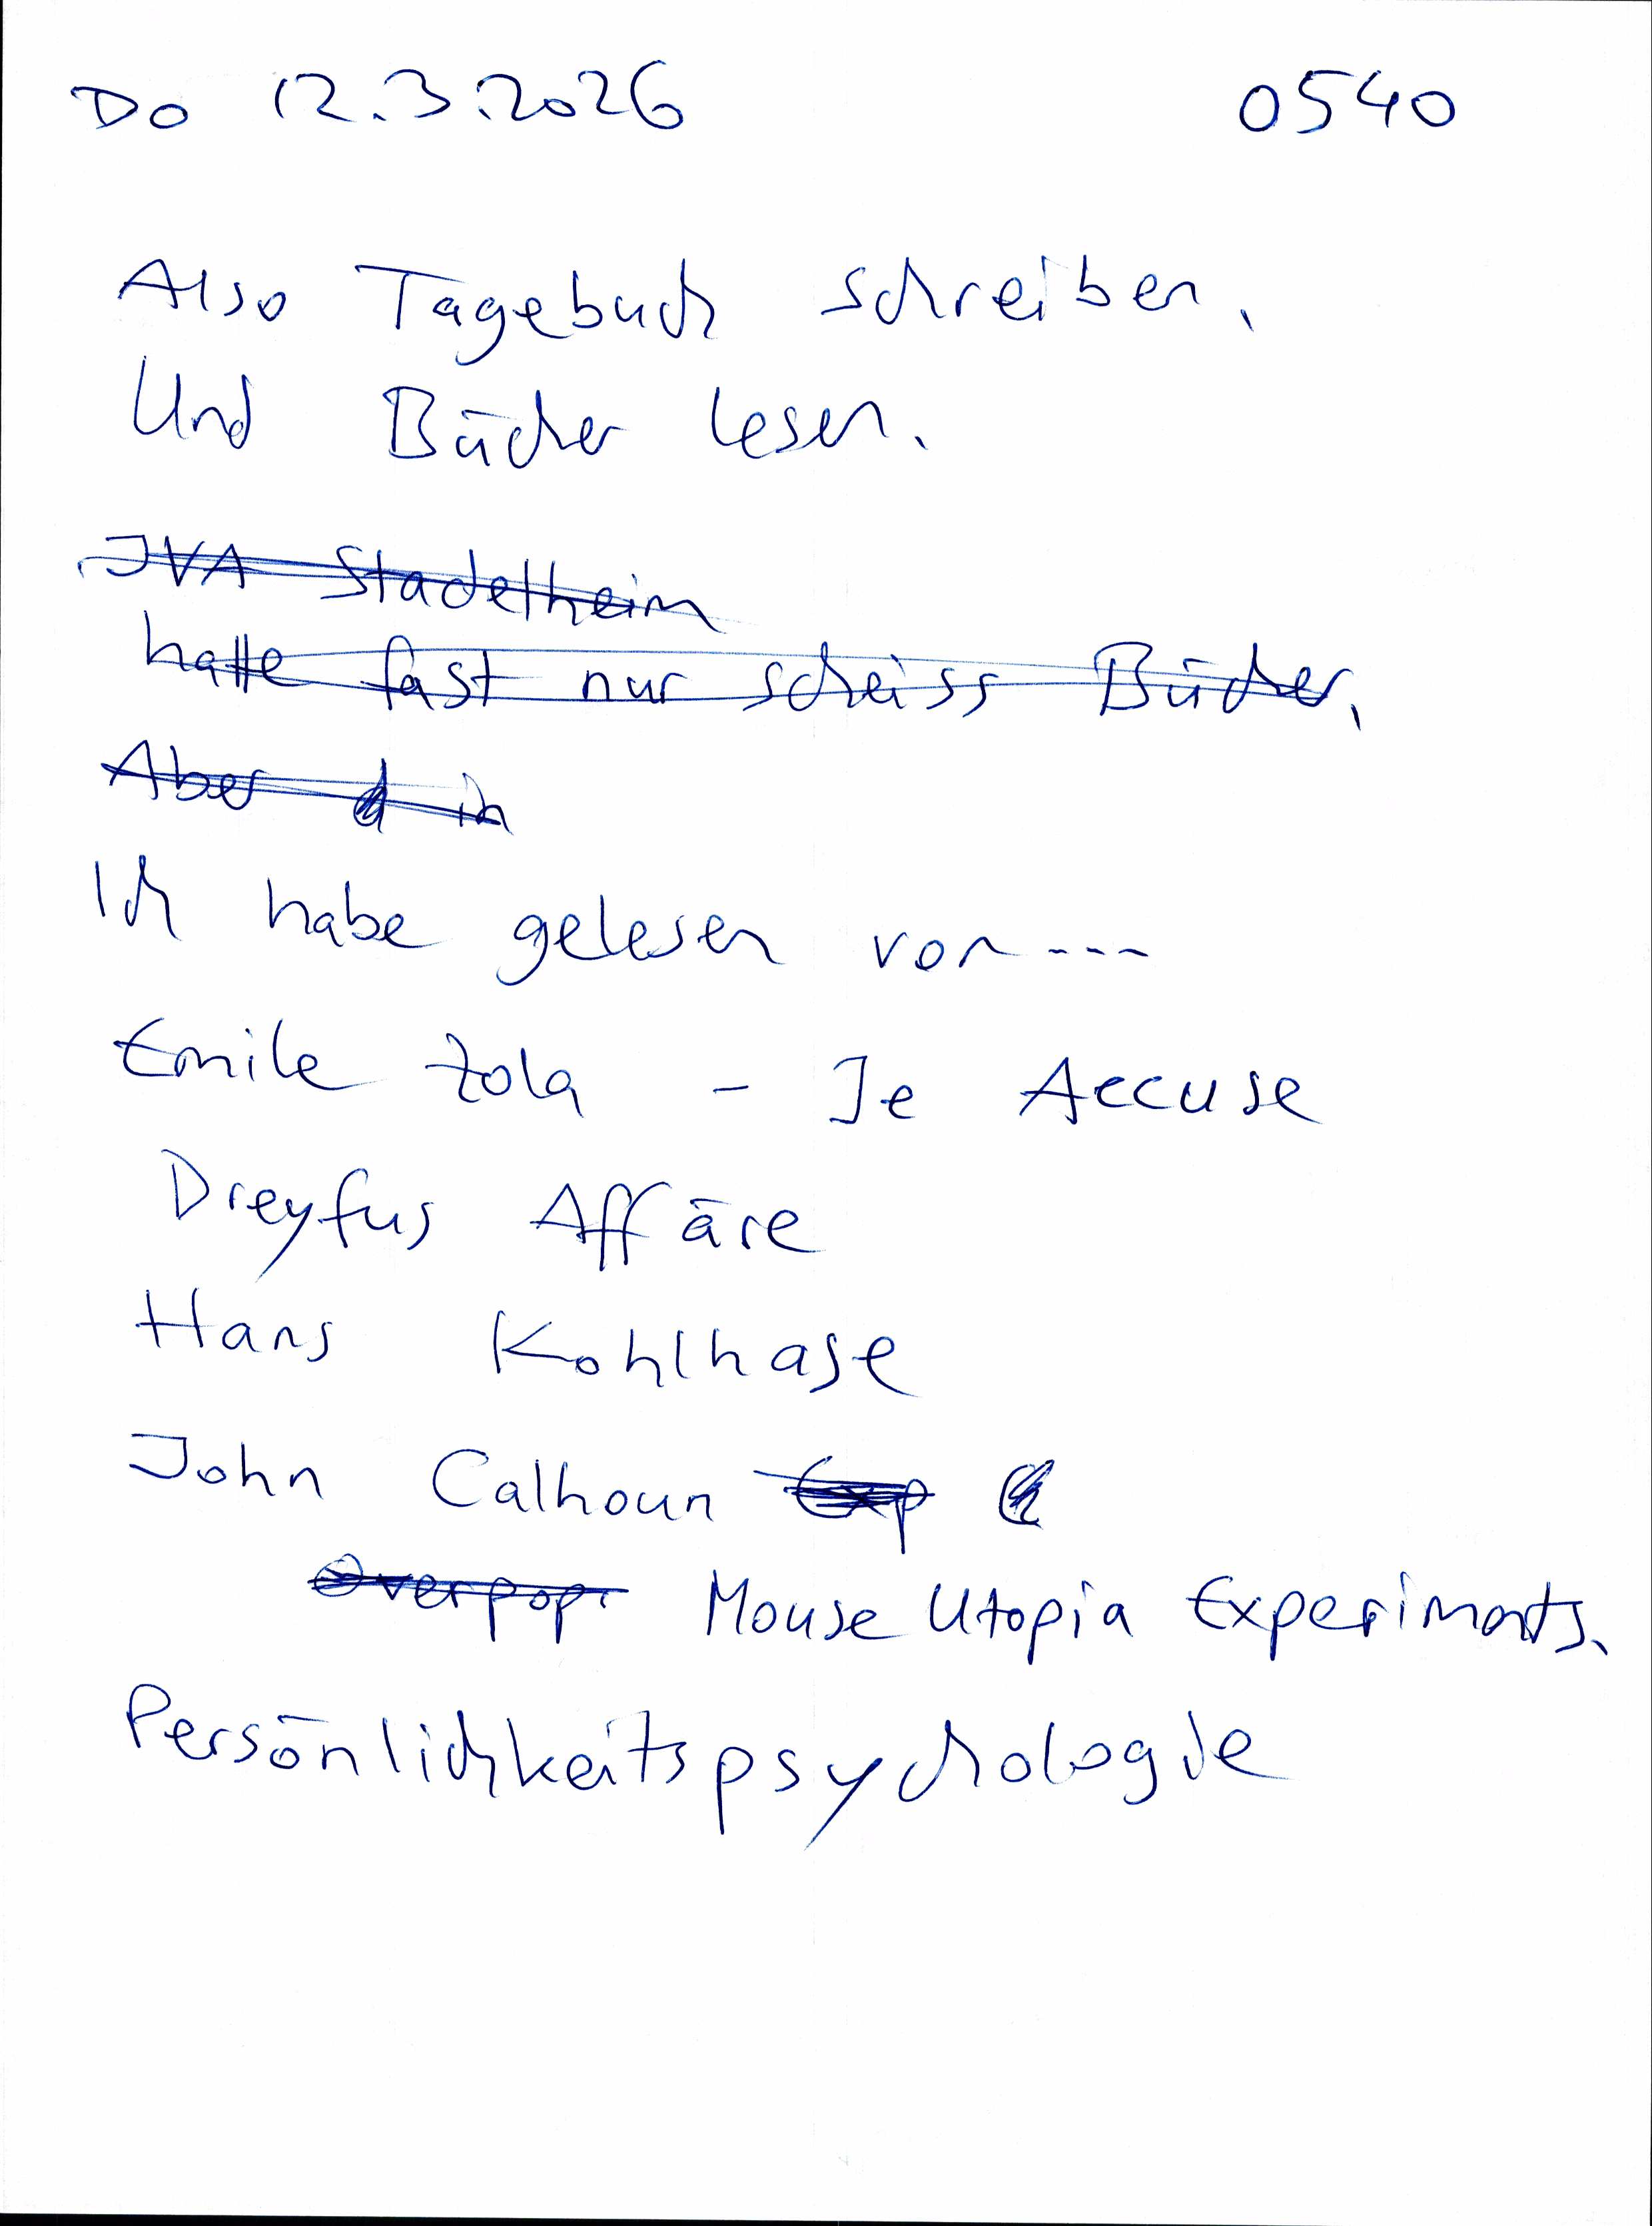 Do 12.3.2026 0540
Also Tagebuch schreiben.
Und Bücher lesen.
JVA Stadelheim
hatte fast nur scheiss Bücher.
Aber d in
Ich habe gelesen von ---
Emile Zola - Je Accuse
Dreyfus Affäre
Hans Kohlhase
John Calhoun Exp
Overpop. Mouse Utopia Experiments.
Persönlichkeitspsychologie